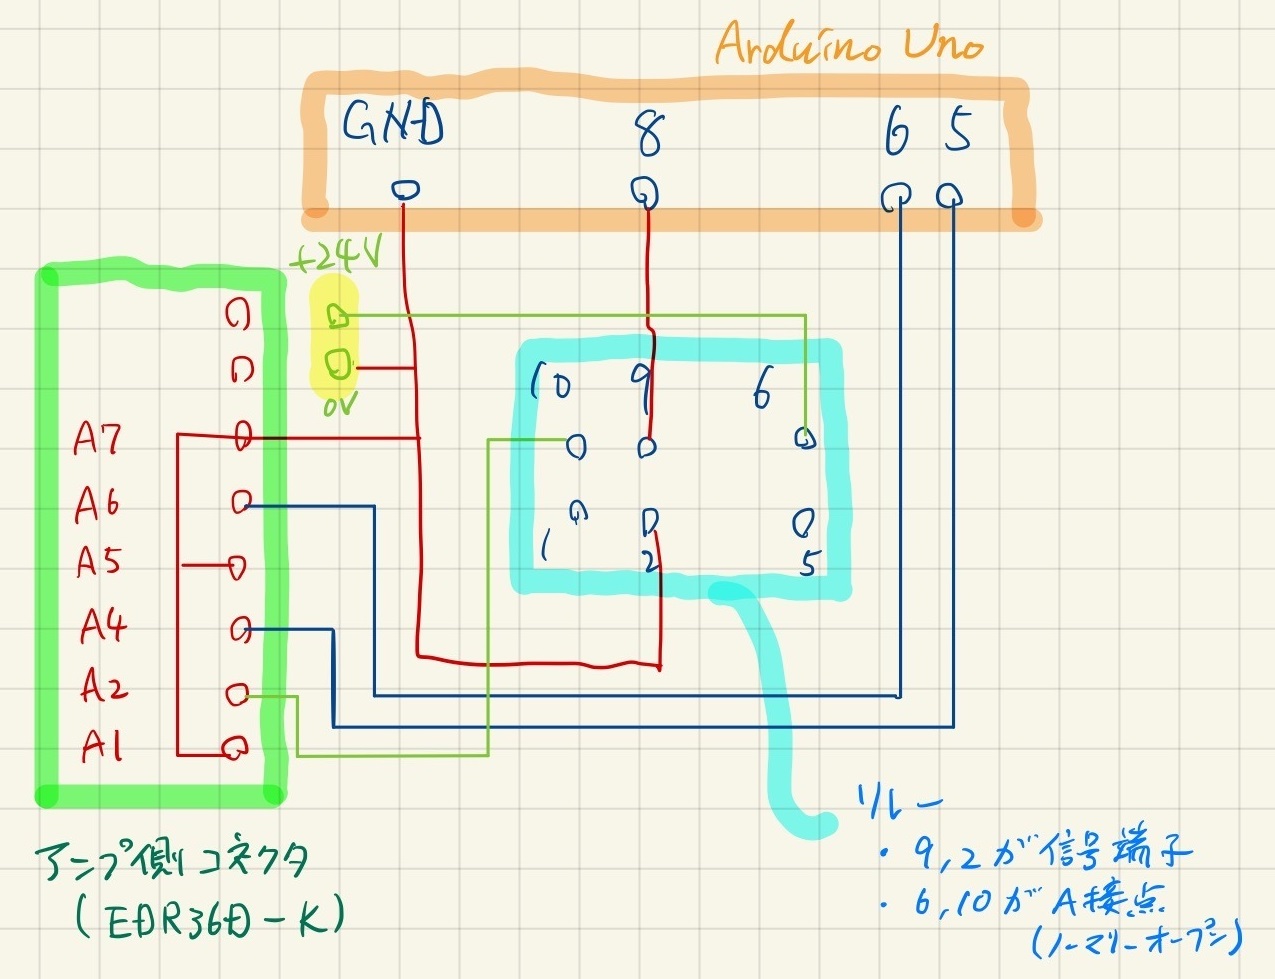 Arduino Uno
GND 8 6 5
+24V
0V
10 9 6
1 2 5
A7
A6
A5
A4
A2
A1
アンプ側コネクタ
(EDR36D-K)
リレー
・9,2が信号端子
・6,10がA接点
(ノーマリーオープン)